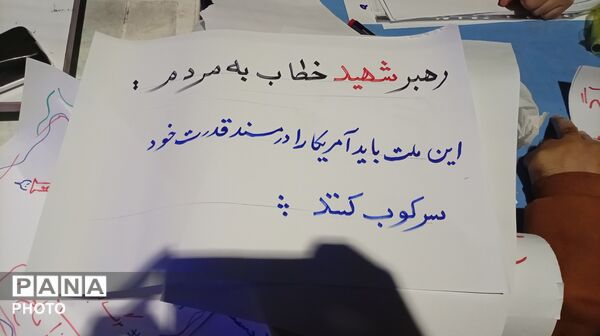 رهبر شهید خطاب به مردم :
این ملت باید آمریکا را در مسند قدرت خود
سرکوب کنند :
PANA
PHOTO